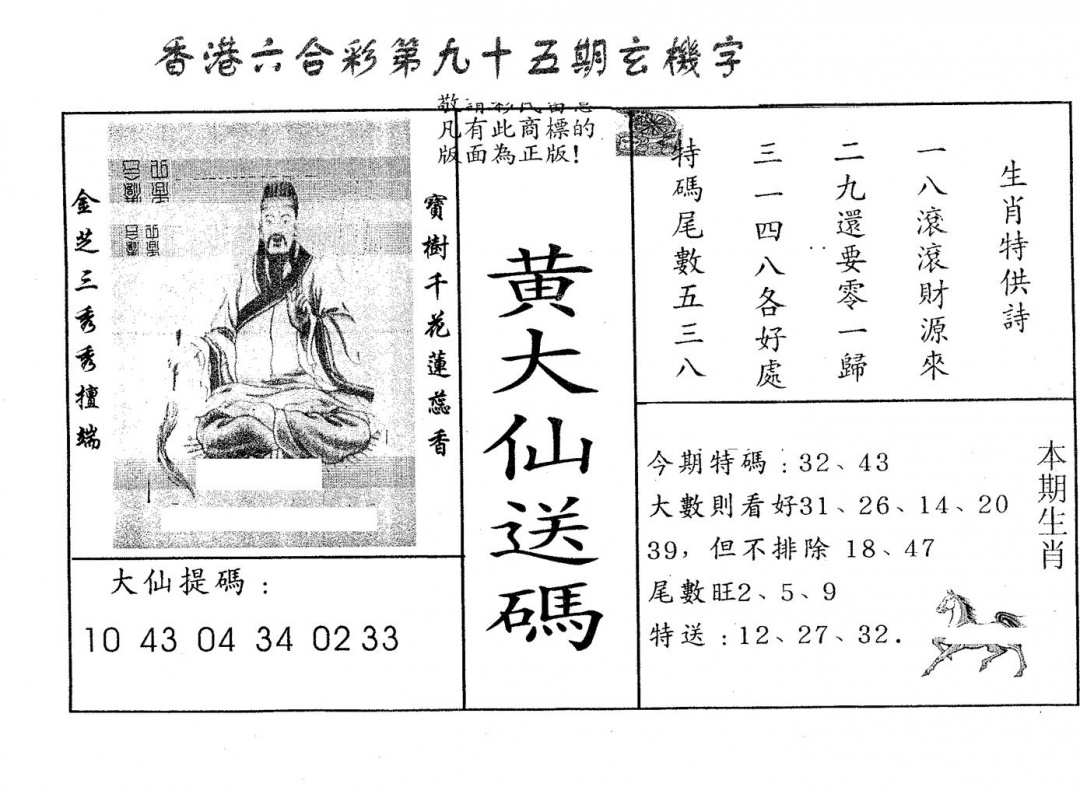 香港六合彩第九十五期玄機字
敬請彩民留意
凡有此商標的
版面為正版！
金芝三秀秀擅端
寶樹千花蓮蕊香
大仙提碼：
10 43 04 34 02 33
黃大仙送碼
生肖特供詩
一八滾滾財源來
二九還要零一歸
三一四八各好處
特碼尾數五三八
今期特碼：32、43
大數則看好31、26、14、20
39，但不排除 18、47
尾數旺2、5、9
特送：12、27、32.
本期生肖